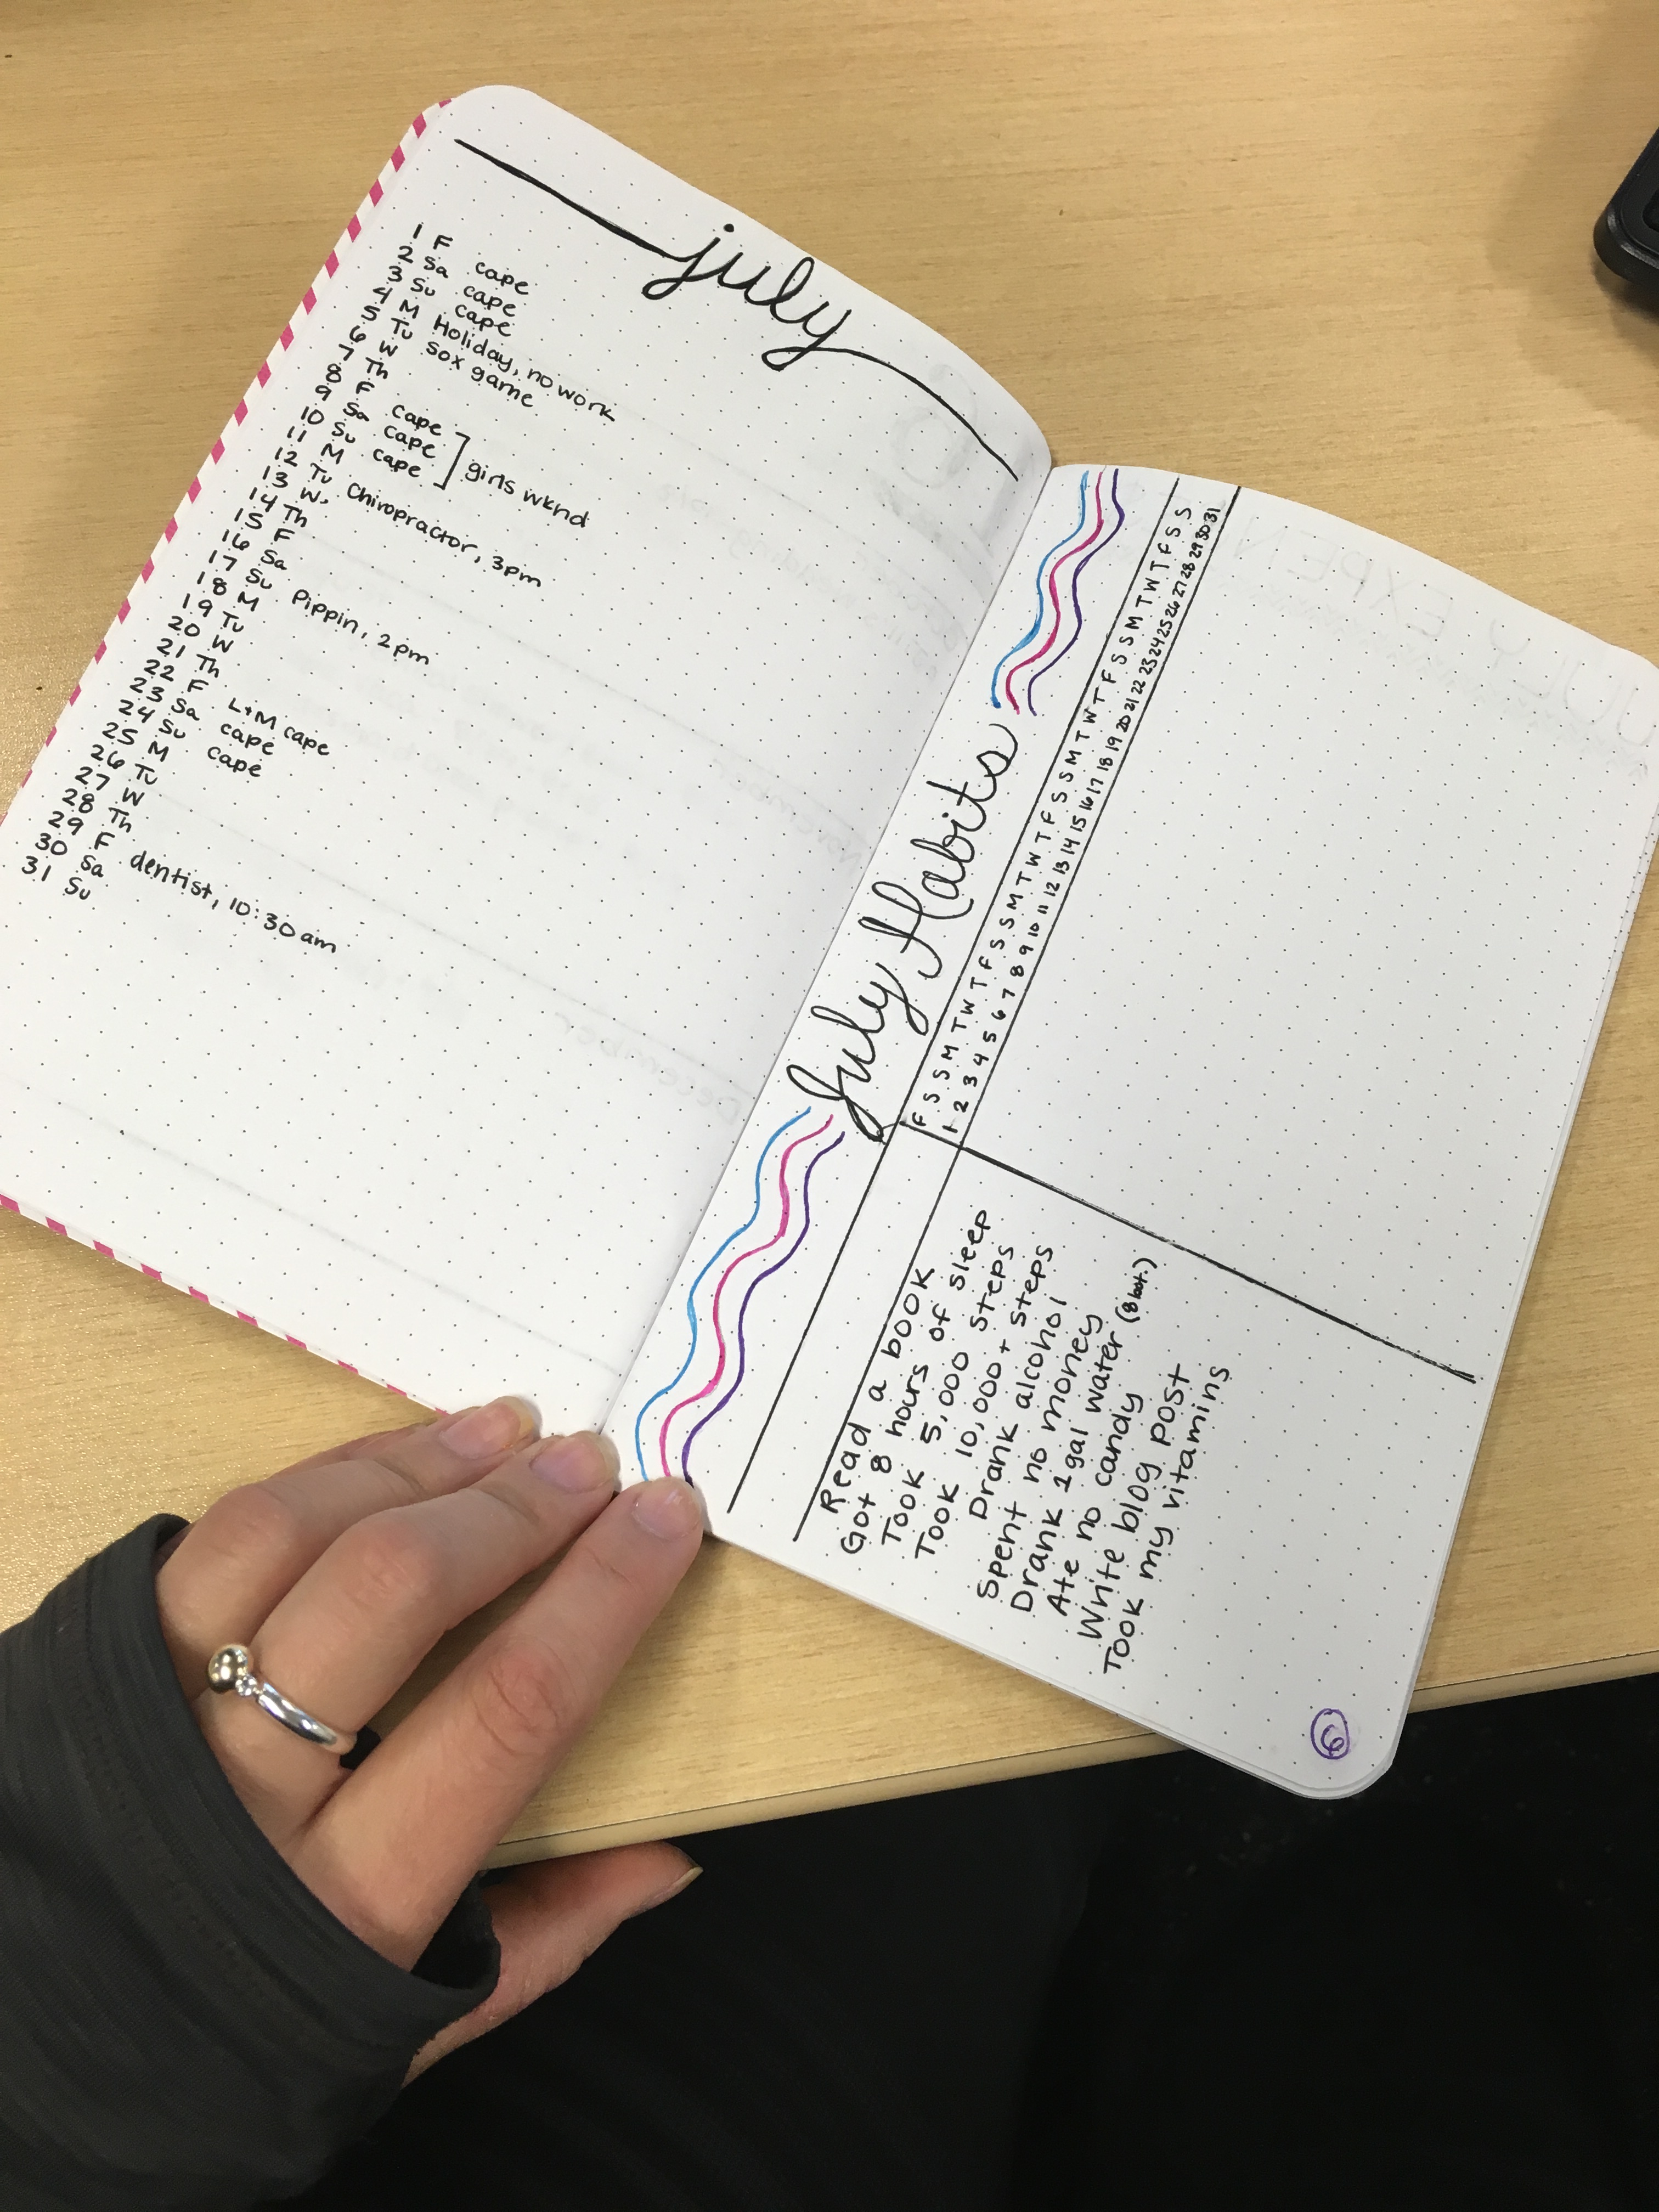 july
1 F cape
2 Sa cape
3 Su cape
4 M Holiday, no work
5 Tu Sox game
6 W
7 Th
8 F cape
9 Sa cape
10 Su cape
girls wknd
11 M
12 Tu Chiropractor, 3pm
13 W
14 Th
15 F
16 Sa
17 Su Pippin, 2pm
18 M
19 Tu
20 W
21 Th
22 F L+M cape
23 Sa cape
24 Su cape
25 M
26 Tu
27 W
28 Th
29 F dentist, 10:30am
30 Sa
31 Su
July Habits
F S S M T W T F S S M T W T F S S M T W T F S S M T W T F S S
1 2 3 4 5 6 7 8 9 10 11 12 13 14 15 16 17 18 19 20 21 22 23 24 25 26 27 28 29 30 31
Read a book
Got 8 hours of sleep
Took 5,000 steps
Took 10,000+ steps
Drank alcohol
Spent no money
Drank 1 gal water (8 bot.)
Ate no candy
Write blog post
Took my vitamins
6